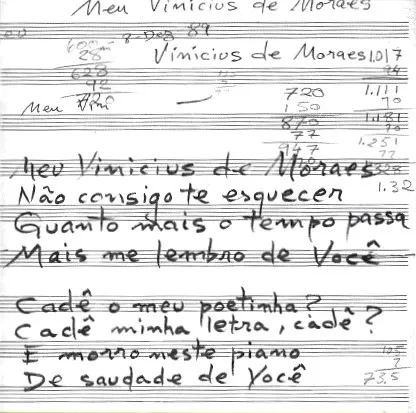 Meu Vinicius de Moraes
8-Dez 89
Vinicius de Moraes
1.017
600
28
628
92
720
94
1.111
70
1.181
70
1.251
77
1.328
1.32
720
150
870
77
947
Meu Vini
Meu Vinicius de Moraes
Não consigo te esquecer
Quanto mais o tempo passa
Mais me lembro de Você
Cadê o meu poetinha?
Cadê minha letra, cadê?
E morro neste piano
De saudade de Você
105
7
73.5